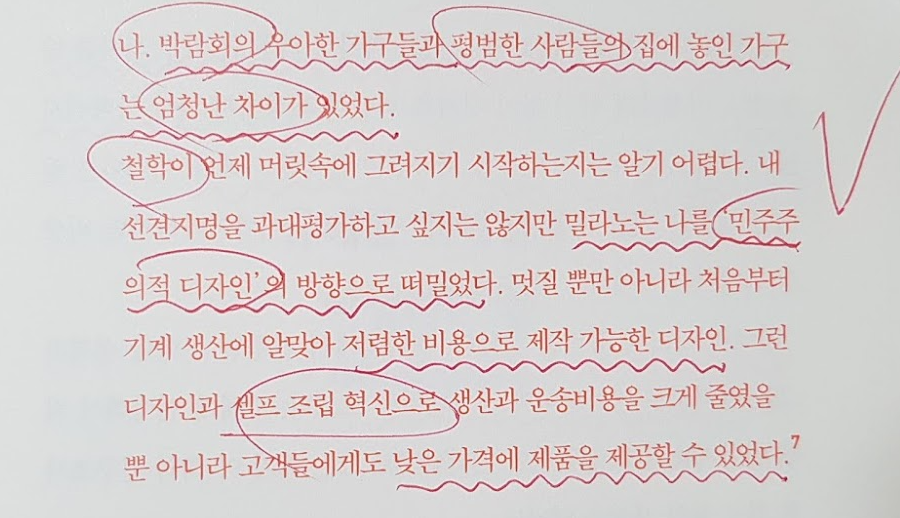 나. 박람회의 우아한 가구들과 평범한 사람들의 집에 놓인 가구
는 엄청난 차이가 있었다.
철학이 언제 머릿속에 그려지기 시작하는지는 알기 어렵다. 내
선견지명을 과대평가하고 싶지는 않지만 밀라노는 나를 ‘민주주
의적 디자인’의 방향으로 떠밀었다. 멋질 뿐만 아니라 처음부터
기계 생산에 알맞아 저렴한 비용으로 제작 가능한 디자인. 그런
디자인과 셀프 조립 혁신으로 생산과 운송비용을 크게 줄였을
뿐 아니라 고객들에게도 낮은 가격에 제품을 제공할 수 있었다.7